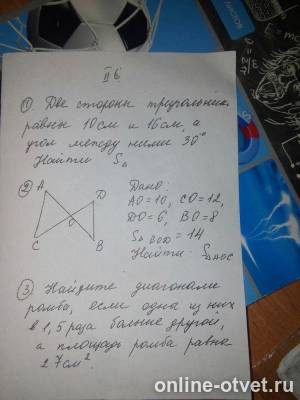 II б
① Две стороны треугольника
равны 10 см и 16 см, а
угол между ними 30°
Найти S△
② Дано:
A D AO=10, CO=12,
DO=6, BO=8
O S△ BOD = 14
C B Найти S△AOC
③ Найдите диагонали
ромба, если одна из них
в 1,5 раза больше другой,
а площадь ромба равна
27 см².
online-otvet.ru